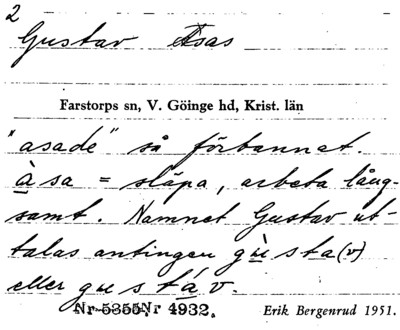 2
Gustav Asas
Farstorps sn, V. Göinge hd, Krist. län
"asade" så förbannat.
àsa = släpa, arbeta lång-
samt. Namnet Gustav ut-
talas antingen gùsta(v)
eller gustáv.
Nr 5355. Nr 4932.
Erik Bergenrud 1951.